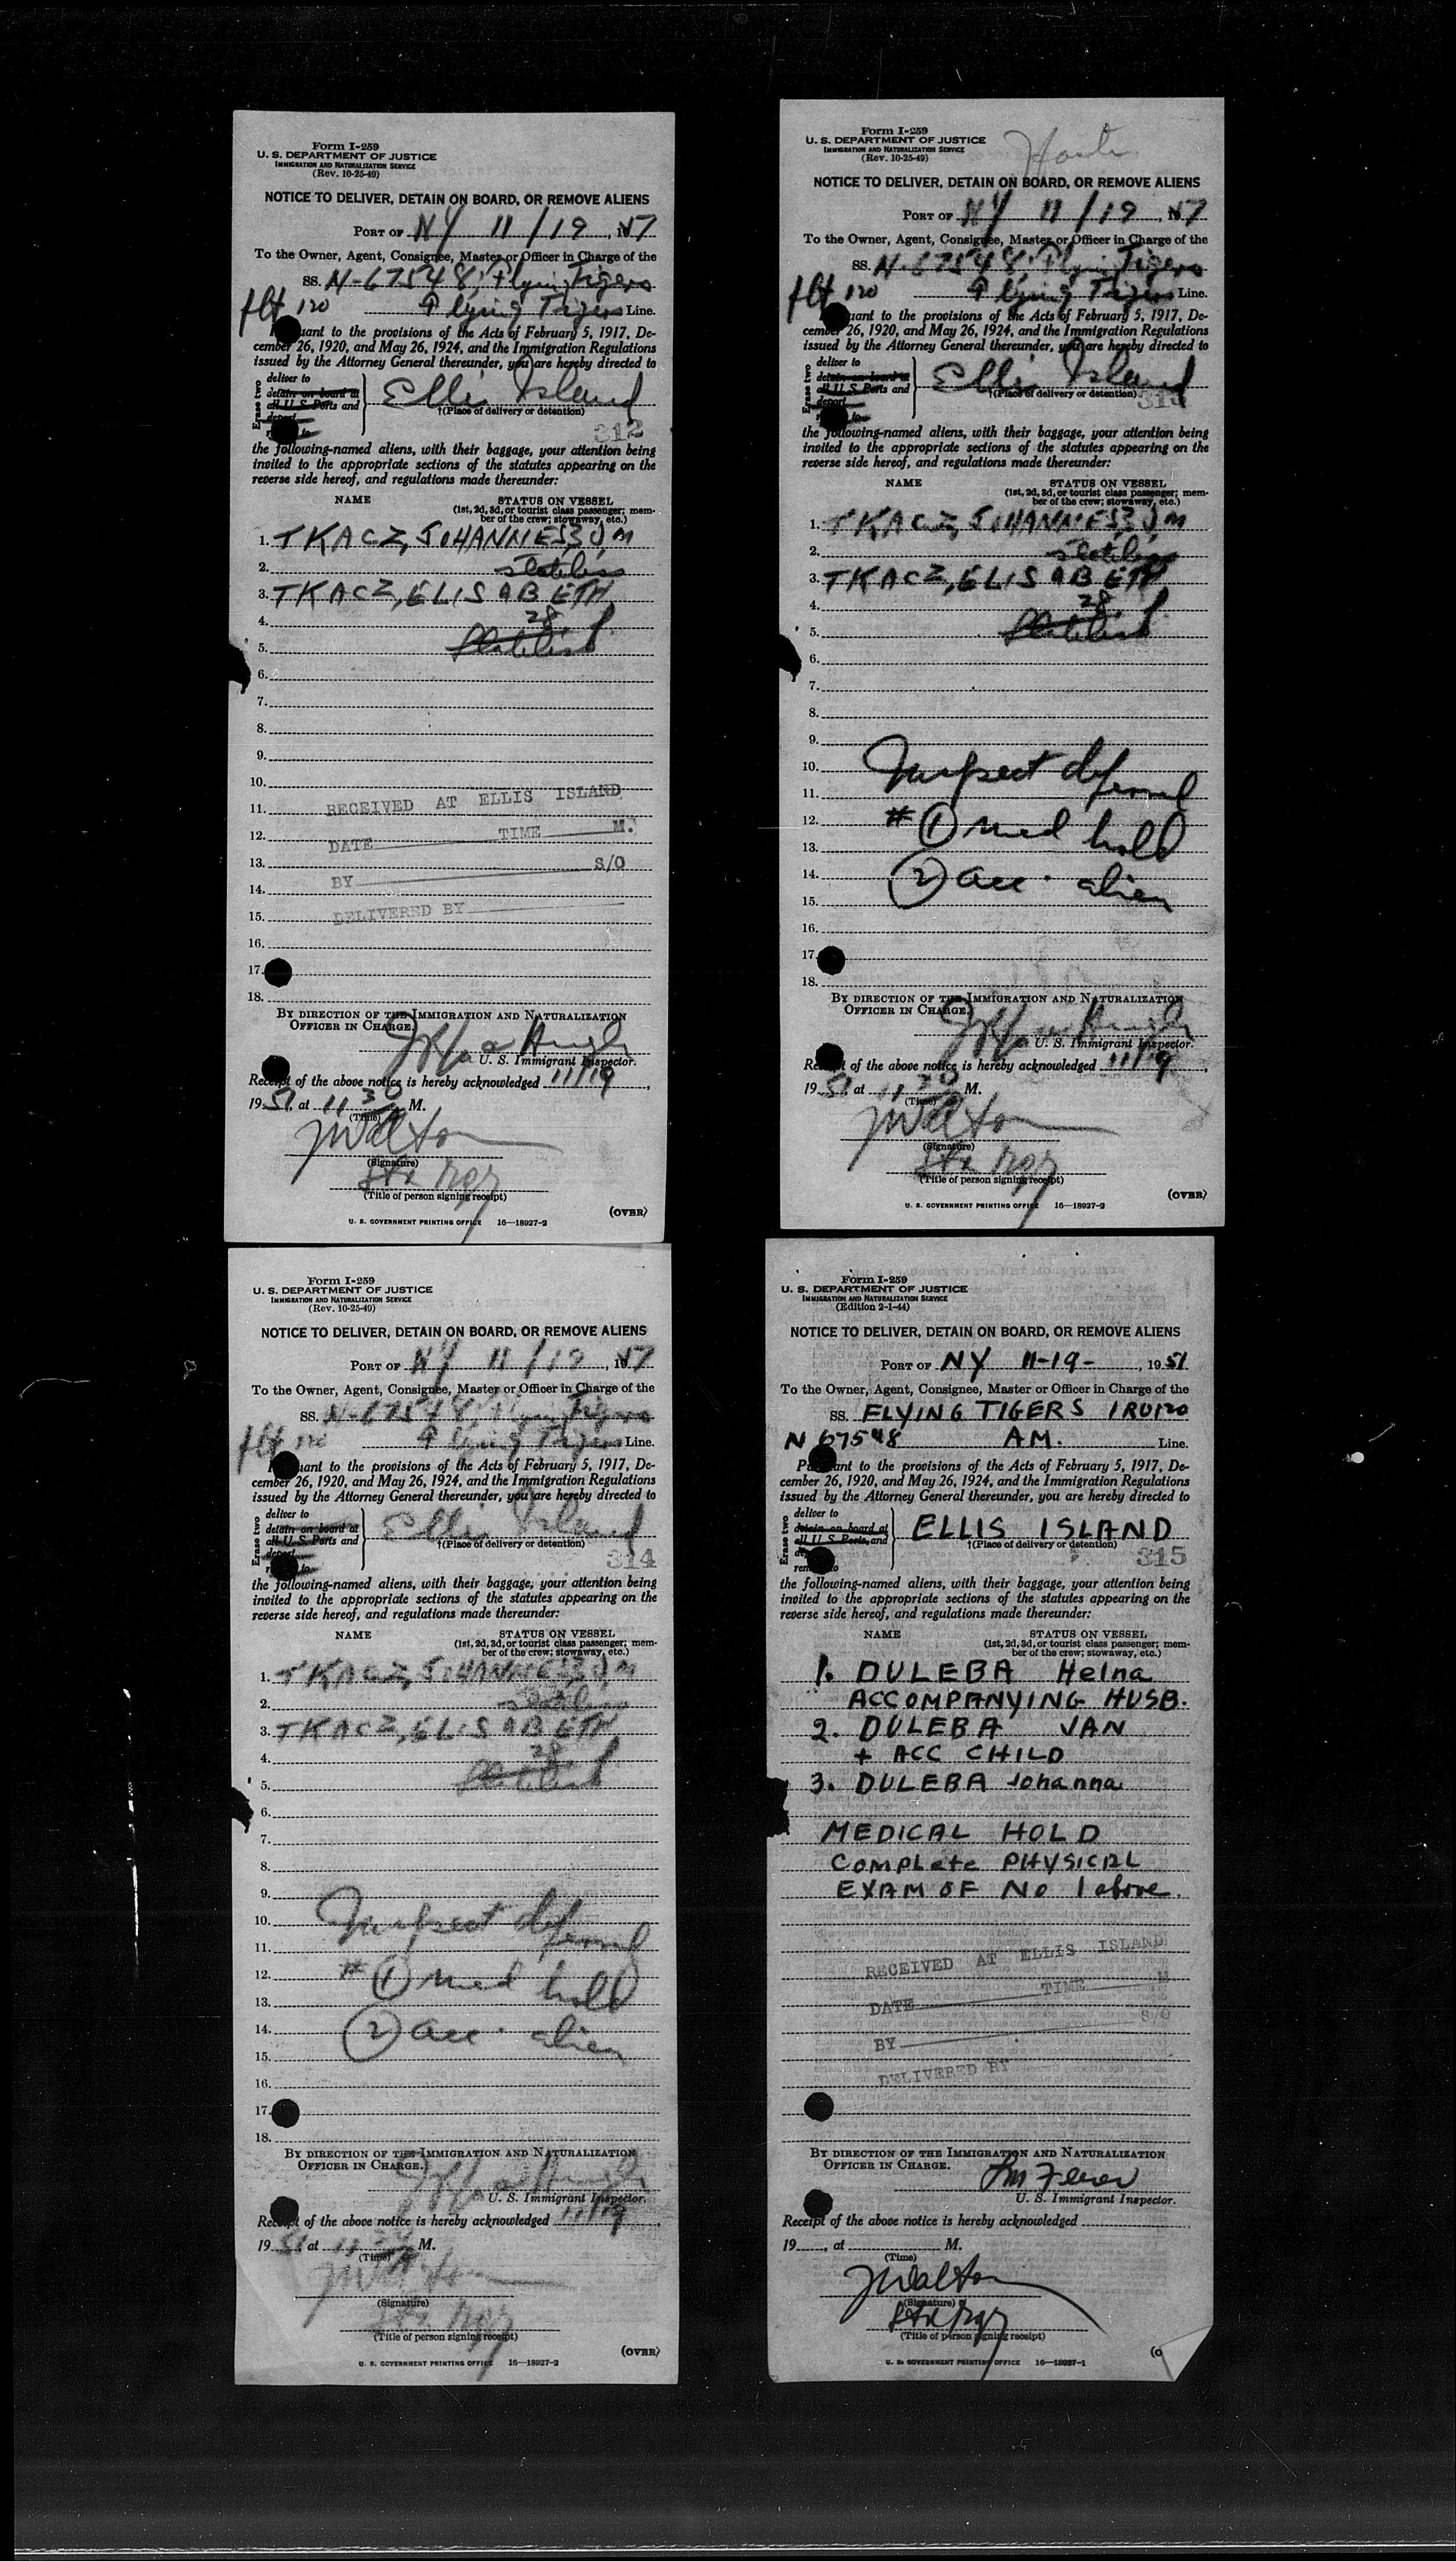 Form I-259
U. S. DEPARTMENT OF JUSTICE
IMMIGRATION AND NATURALIZATION SERVICE
(Rev. 10-25-49)
NOTICE TO DELIVER, DETAIN ON BOARD, OR REMOVE ALIENS
PORT OF NY 11/19, 19
To the Owner, Agent, Consignee, Master or Officer in Charge of the
SS. N-67548, Flying Tigers
flt 120 Flying Tigers Line.
uant to the provisions of the Acts of February 5, 1917, De-
cember 26, 1920, and May 26, 1924, and the Immigration Regulations
issued by the Attorney General thereunder, you are hereby directed to
Erase two
deliver to
detain on board at
all U. S. Ports and
deport
Ellis Island
†(Place of delivery or detention)
312
the following-named aliens, with their baggage, your attention being
invited to the appropriate sections of the statutes appearing on the
reverse side hereof, and regulations made thereunder:
NAME STATUS ON VESSEL
(1st, 2d, 3d, or tourist class passenger; mem-
ber of the crew; stowaway, etc.)
1. TKACZ, JOHANNES, 30 M
2. stateless
3. TKACZ, ELISABETH
4. 28 f
5. stateless
6.
7.
8.
9.
10.
11. RECEIVED AT ELLIS ISLAND
12. DATE TIME M.
13. S/O
14. BY
15. DELIVERED BY
16.
17.
18.
BY DIRECTION OF THE IMMIGRATION AND NATURALIZATION
OFFICER IN CHARGE.
U. S. Immigrant Inspector.
Receipt of the above notice is hereby acknowledged 11/19,
19 51, at 11 30 M.
(Time)
J Walton
(Signature)
Sta Mgr
(Title of person signing receipt)
(OVER)
U. S. GOVERNMENT PRINTING OFFICE 16—18927-2
Form I-259
U. S. DEPARTMENT OF JUSTICE
IMMIGRATION AND NATURALIZATION SERVICE
(Rev. 10-25-49)
NOTICE TO DELIVER, DETAIN ON BOARD, OR REMOVE ALIENS
PORT OF NY 11/19, 19
To the Owner, Agent, Consignee, Master or Officer in Charge of the
SS. N-67548, Flying Tigers
flt 120 Flying Tigers Line.
uant to the provisions of the Acts of February 5, 1917, De-
cember 26, 1920, and May 26, 1924, and the Immigration Regulations
issued by the Attorney General thereunder, you are hereby directed to
Erase two
deliver to
detain on board at
all U. S. Ports and
deport
Ellis Island
†(Place of delivery or detention)
the following-named aliens, with their baggage, your attention being
invited to the appropriate sections of the statutes appearing on the
reverse side hereof, and regulations made thereunder:
NAME STATUS ON VESSEL
(1st, 2d, 3d, or tourist class passenger; mem-
ber of the crew; stowaway, etc.)
1. TKACZ, JOHANNES, 30 M
2. stateless
3. TKACZ, ELISABETH
4. 28 f
5. stateless
6.
7.
8.
9.
10. Inspect def
11. erred
12. # (1) med hold
13.
14. (2) acc. alien
15.
16.
17.
18.
BY DIRECTION OF THE IMMIGRATION AND NATURALIZATION
OFFICER IN CHARGE.
U. S. Immigrant Inspector.
Receipt of the above notice is hereby acknowledged 11/19,
19 51, at 11 30 M.
(Time)
J Walton
(Signature)
Sta Mgr
(Title of person signing receipt)
(OVER)
U. S. GOVERNMENT PRINTING OFFICE 16—18927-2
Form I-259
U. S. DEPARTMENT OF JUSTICE
IMMIGRATION AND NATURALIZATION SERVICE
(Rev. 10-25-49)
NOTICE TO DELIVER, DETAIN ON BOARD, OR REMOVE ALIENS
PORT OF NY 11/19, 19
To the Owner, Agent, Consignee, Master or Officer in Charge of the
SS. N-67548, Flying Tigers
flt 120 Flying Tigers Line.
uant to the provisions of the Acts of February 5, 1917, De-
cember 26, 1920, and May 26, 1924, and the Immigration Regulations
issued by the Attorney General thereunder, you are hereby directed to
Erase two
deliver to
detain on board at
all U. S. Ports and
deport
Ellis Island
†(Place of delivery or detention)
314
the following-named aliens, with their baggage, your attention being
invited to the appropriate sections of the statutes appearing on the
reverse side hereof, and regulations made thereunder:
NAME STATUS ON VESSEL
(1st, 2d, 3d, or tourist class passenger; mem-
ber of the crew; stowaway, etc.)
1. TKACZ, JOHANNES, 30 M
2. stateless
3. TKACZ, ELISABETH
4. 28 f
5. stateless
6.
7.
8.
9.
10. Inspect def
11. erred
12. # (1) med hold
13.
14. (2) acc. alien
15.
16.
17.
18.
BY DIRECTION OF THE IMMIGRATION AND NATURALIZATION
OFFICER IN CHARGE.
U. S. Immigrant Inspector.
Receipt of the above notice is hereby acknowledged 11/19,
19 51 at 11 30 M.
(Time)
J Walton
(Signature)
Sta Mgr
(Title of person signing receipt)
(OVER)
U. S. GOVERNMENT PRINTING OFFICE 16—18927-2
Form I-259
U. S. DEPARTMENT OF JUSTICE
IMMIGRATION AND NATURALIZATION SERVICE
(Edition 2-1-44)
NOTICE TO DELIVER, DETAIN ON BOARD, OR REMOVE ALIENS
PORT OF NY 11-19-, 1951
To the Owner, Agent, Consignee, Master or Officer in Charge of the
SS. FLYING TIGERS IRO120
N 67548 AM. Line.
Pursuant to the provisions of the Acts of February 5, 1917, De-
cember 26, 1920, and May 26, 1924, and the Immigration Regulations
issued by the Attorney General thereunder, you are hereby directed to
Erase two
deliver to
detain on board at
all U. S. Ports, and
ELLIS ISLAND
†(Place of delivery or detention)
315
the following-named aliens, with their baggage, your attention being
invited to the appropriate sections of the statutes appearing on the
reverse side hereof, and regulations made thereunder:
NAME STATUS ON VESSEL
(1st, 2d, 3d, or tourist class passenger; mem-
ber of the crew; stowaway, etc.)
1. DULEBA Helna
ACCOMPANYING HUSB.
2. DULEBA JAN
+ ACC CHILD
3. DULEBA Johanna
MEDICAL HOLD
COMPLete PHYSICAL
EXAM OF No 1 above.
RECEIVED AT ELLIS ISLAND
DATE TIME M
S/O
BY
DELIVERED BY
BY DIRECTION OF THE IMMIGRATION AND NATURALIZATION
OFFICER IN CHARGE.
U. S. Immigrant Inspector.
Receipt of the above notice is hereby acknowledged
19 , at M.
(Time)
J Walton
(Signature)
Sta Mgr
(Title of person signing receipt)
U. S. GOVERNMENT PRINTING OFFICE 16—18927-1